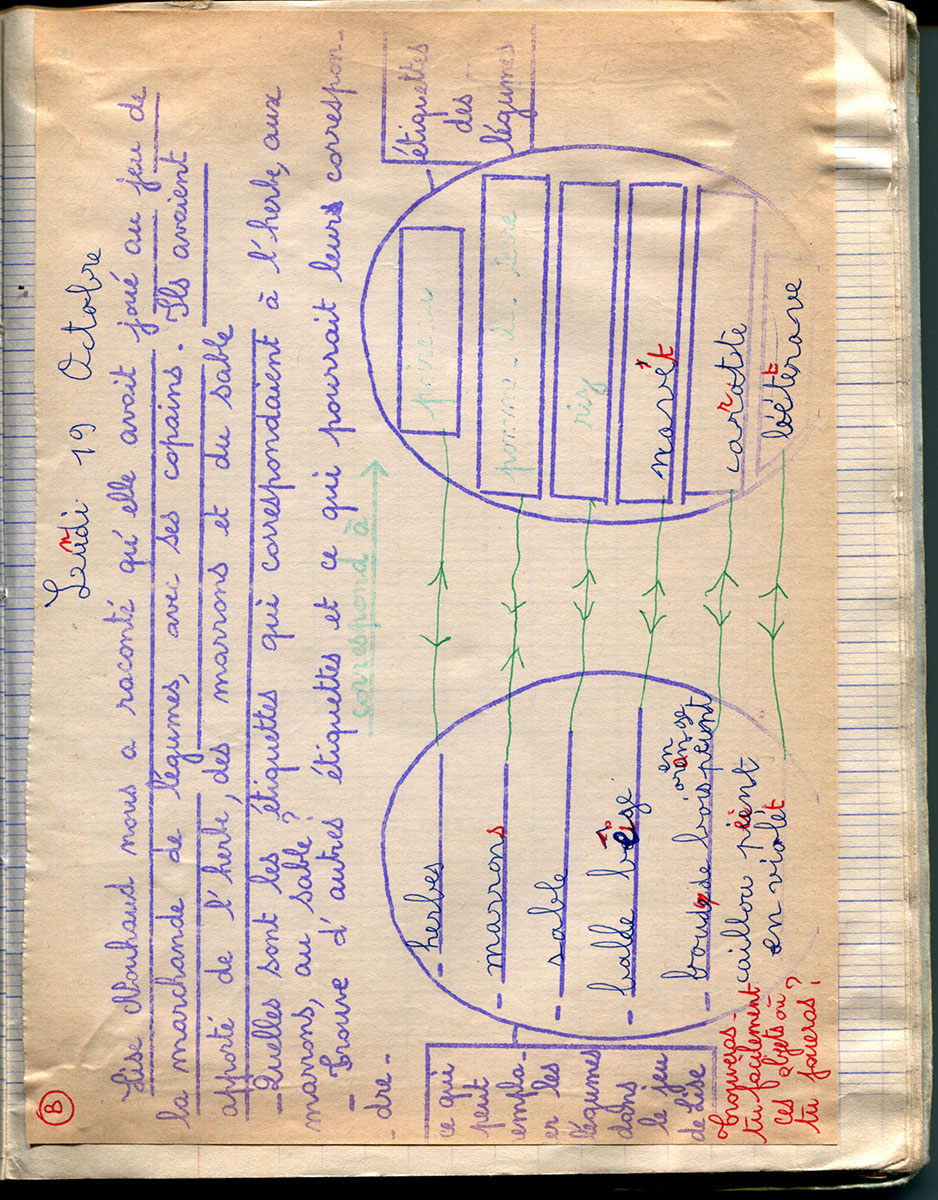 B
Lendi 19 Octobre
Lise Nouhaud nous a raconté qu'elle avait joué au jeu de
la marchande de légumes, avec ses copains. Ils avaient
apporté de l'herbe, des marrons et du sable
- Quelles sont les étiquettes qui correspondaient à l'herbe, aux
marrons, au sable ?
- Trouve d'autres étiquettes et ce qui pourrait leurs correspon-
- dre -
correspond à
ce qui
peut
empla-
er les
légumes
dans
le jeu
de Lise
- herbes
- marrons
- sable
- balde beige
- boude bois peint
en
orange
caillou pient
en violet
étiquettes
des
légumes
poireau
pomme de terre
riz
navet
carotte
bétérave
Trouveras-
tu facilement
ces objets où
tu joueras ?